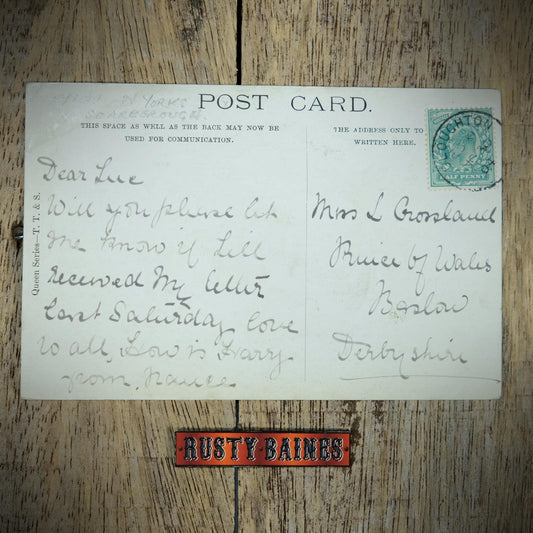 YORKS
SCARBOROUGH
POST CARD.
THIS SPACE AS WELL AS THE BACK MAY NOW BE
USED FOR COMMUNICATION.
THE ADDRESS ONLY TO
WRITTEN HERE.
HALF PENNY
Queen Series—T. T. & S.
Dear Luc
Will you please let
me know if Lill
Received My letter
Last Saturday love
to all, How is Harry
from,
Miss L Crossland
Prince of Wales
Baslow
Derbyshire
·RUSTY·BAINES·